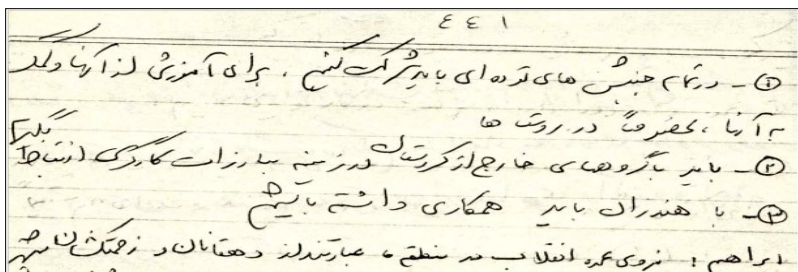 ٤٤١
①- در تمام جنبش های توده ای باید شرکت کنیم ، برای آموزش از آنها و کمک
به آنها ، بخصوص در روستاها
②- باید با گروههای خارج از کردستان در زمینه مبارزات کارگری ارتباط بگیریم
③- با هندران باید همکاری داشته باشیم
ابراهیم : نیروی عمده انقلاب در منطقه ما عبارتند از دهقانان و زحمتکشان شهر